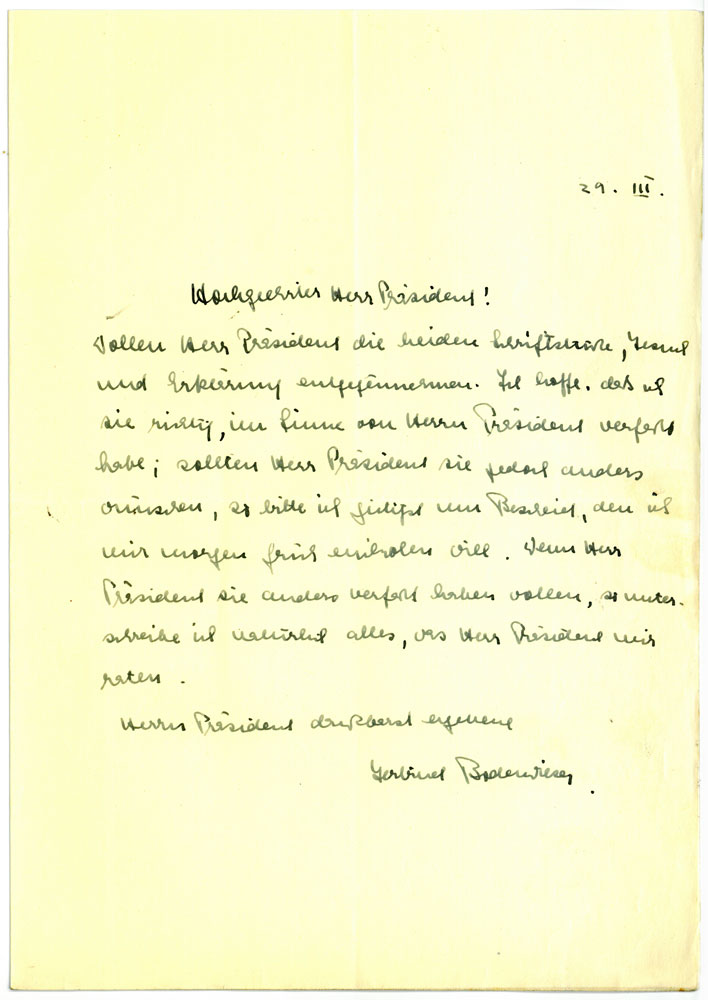 29. III.
Hochgeehrter Herr Präsident!
Wollen Herr Präsident die beiden Schriftstücke, Gesuch
und Erklärung entgegennehmen. Ich hoffe, daß ich
sie richtig, im Sinne von Herrn Präsident verfaßt
habe; sollten Herr Präsident sie jedoch anders
wünschen, so bitte ich gütigst um Bescheid, den ich
mir morgen früh einholen will. Wenn Herr
Präsident sie anders verfaßt haben wollen, so unter-
schreibe ich natürlich alles, was Herr Präsident mir
raten.
Herrn Präsident dankbarst ergebene
Gertrud Bodenwieser